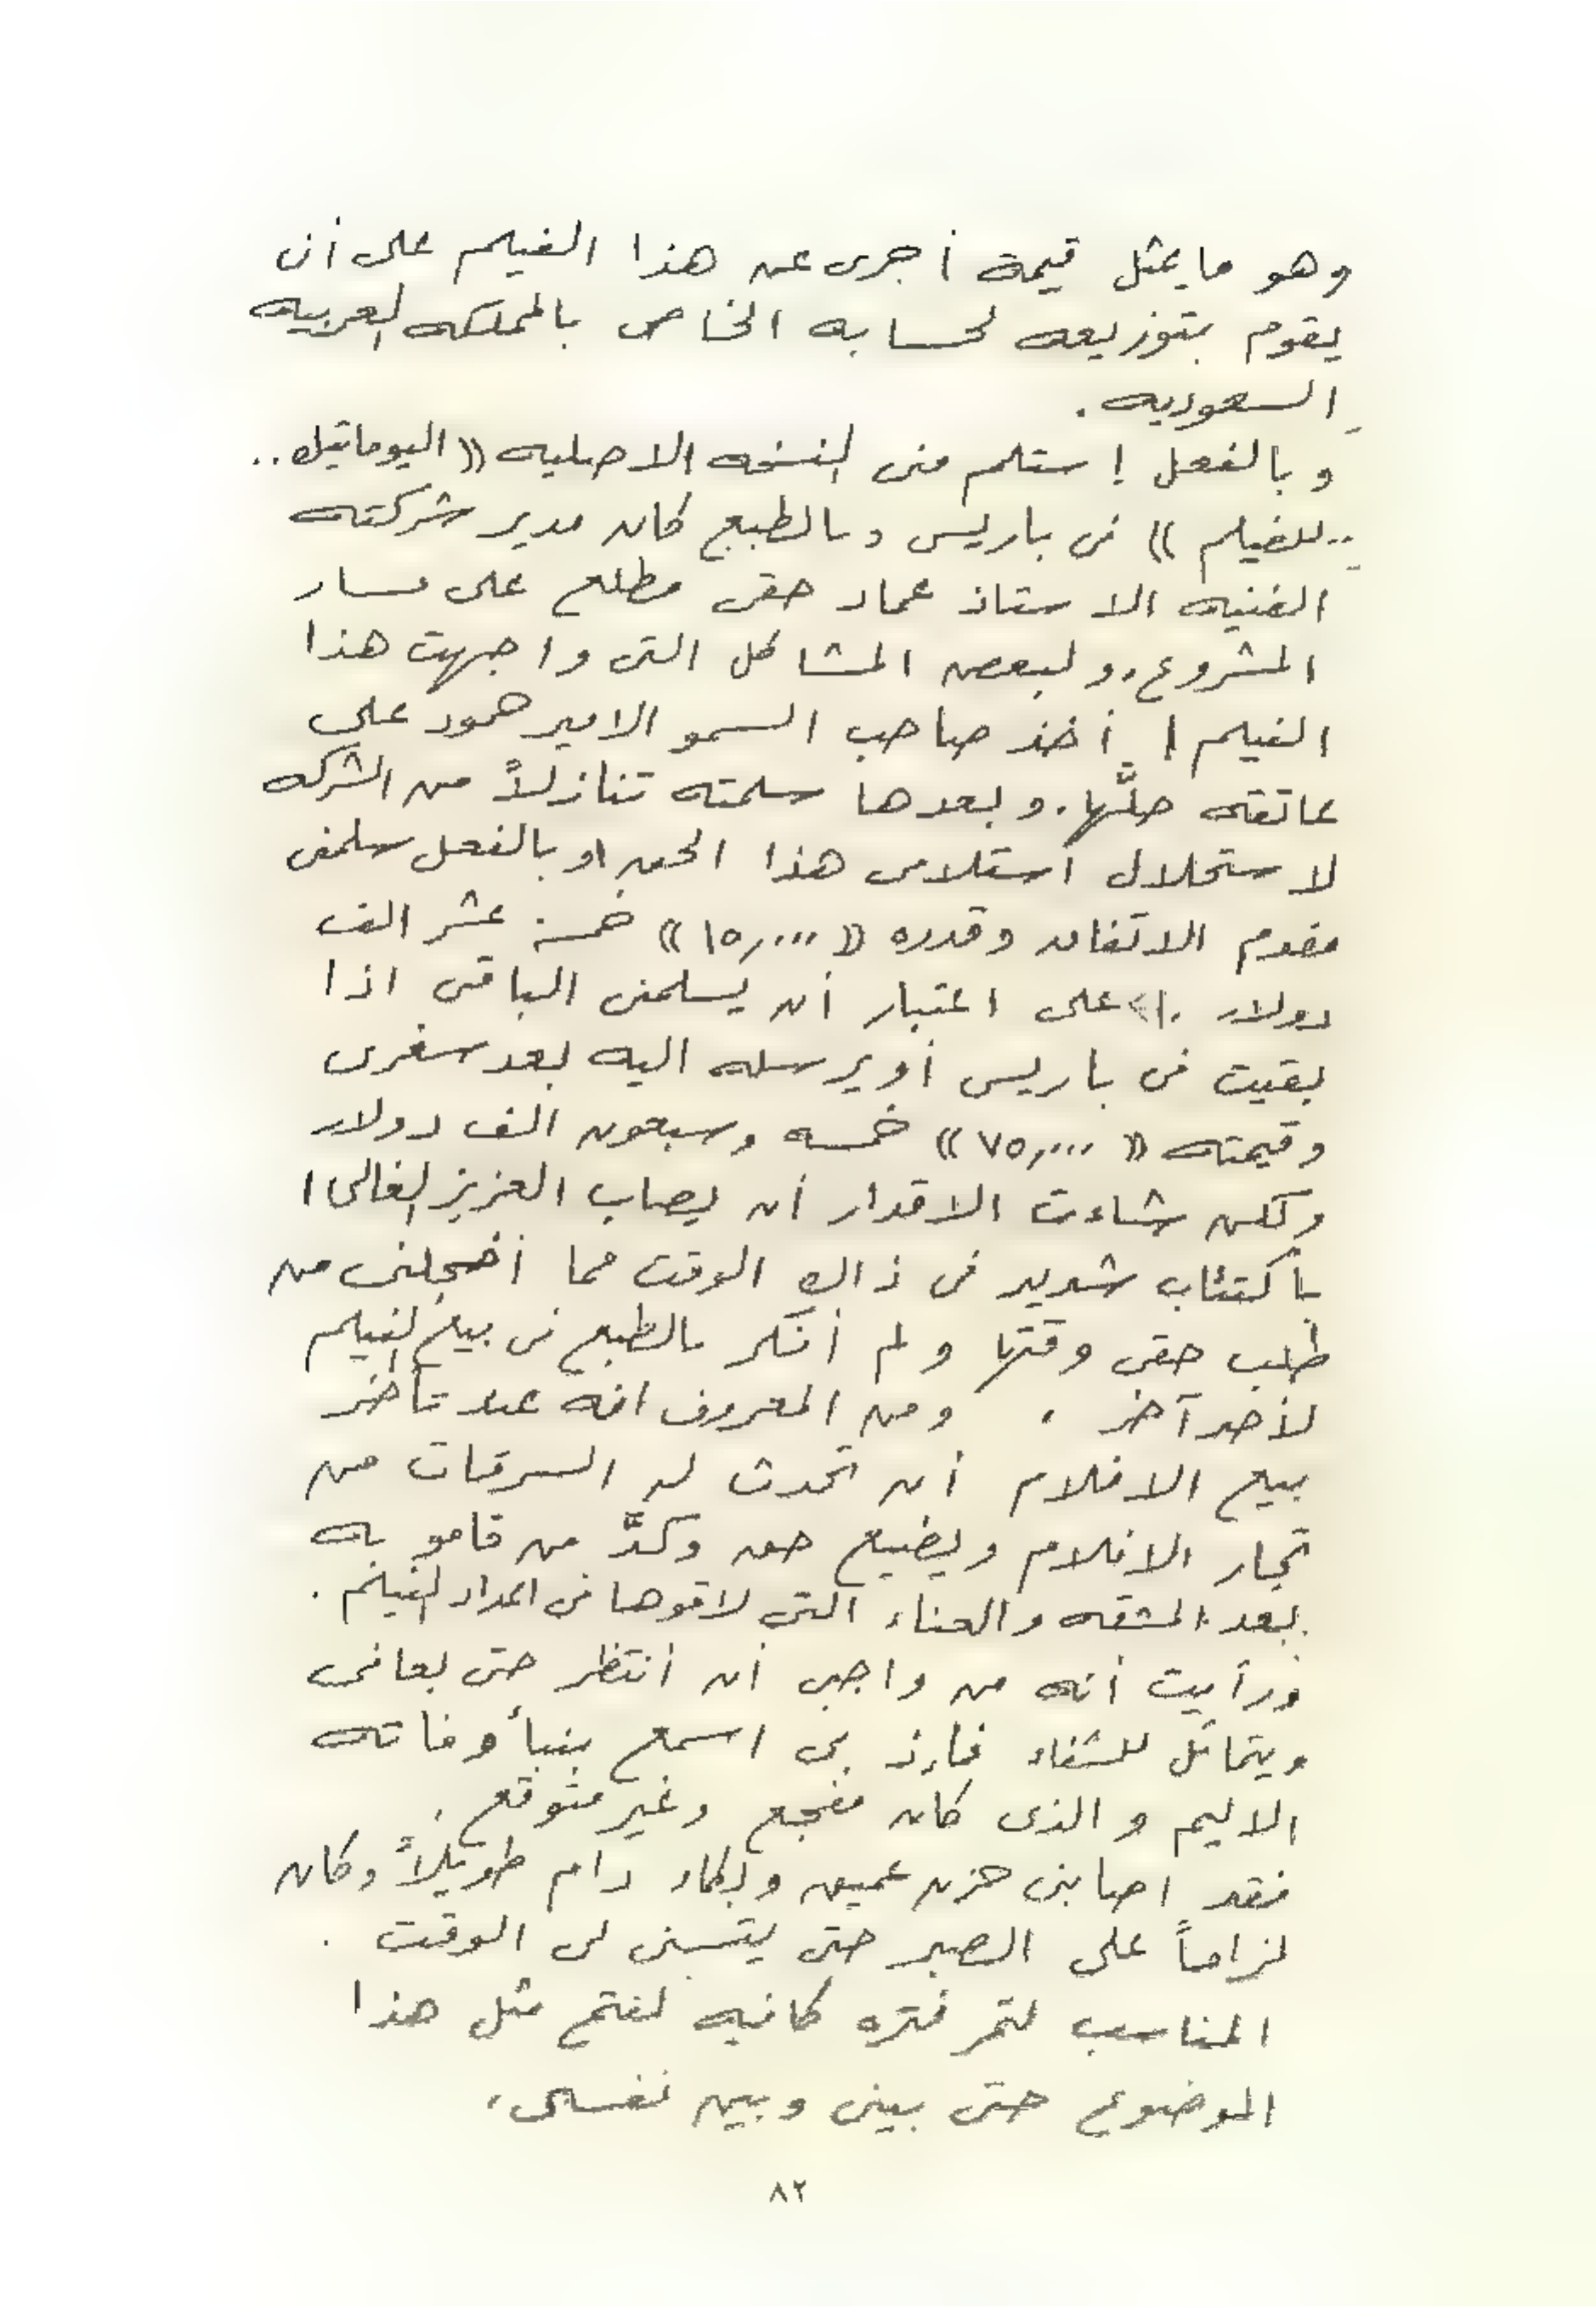 وهو ما يمثل قيمة أجرى عن هذا الفيلم على أن
يقوم بتوزيعه لحسابه الخاص بالمملكه العربيه
السعوديه .
وبالفعل إستلم منى النسخه الاصليه « اليوماتيك ..
.. للفيلم » فى باريس وبالطبع كان مدير شركته
الفنيه الاستاذ عماد حقى مطلع على مسار
المشروع، ولبعض المشاكل التى واجهت هذا
الفيلم ! أخذ صاحب السمو الامير حمود على
عاتقه حلَّها. وبعدها سلمته تنازلاً من الشركه
لاستحلال استلامى هذا الحق او بالفعل سلمنى
مقدم الاتفاق وقدره « ١٥,٠٠٠ » خمسة عشر الف
دولار . على اعتبار أن يسلمنى الباقى اذا
بقيت فى باريس أو يرسله اليه بعد سفرى
وقيمته « ٧٥,٠٠٠ » خمسه وسبعون الف دولار
ولكن شاءت الاقدار أن يصاب العزيز الغالى !
باكتئاب شديد فى ذاك الوقت مما أخجلنى من
طلب حقى وقتها ولم أفكر بالطبع فى بيع الفيلم
لأحد آخر ، ومن المعروف انه عند تأخر
بيع الافلام أن تحدث له السرقات من
تجار الافلام ويضيع حق وكدَّ من قامو به
بعد المشقه والعناء التى لاقوها فى اعداد الفيلم .
ورأيت أنه من واجبى أن أنتظر حتى يعافى
ويتماثل للشفاء فإذ بى اسمع بنبأ وفاته
الاليم والذى كان مفجع وغير متوقع .
فقد اصابنى حزن عميق وبكاء دام طويلاً وكان
لزاماً على الصبر حتى يتسنى لى الوقت .
المناسب لتمر فتره كافيه لفتح مثل هذا
الموضوع حتى بينى وبين نفسى ،
٨٢